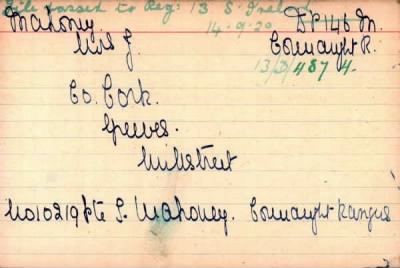 File passed to Reg: 13 S. Ireland
14-9-20
Mahoney DP146 M.
Mrs J. Connaught R.
13/3/487 4.
Co. Cork.
Millstreet
No 10219 Pte J. Mahoney. Connaught Rangers